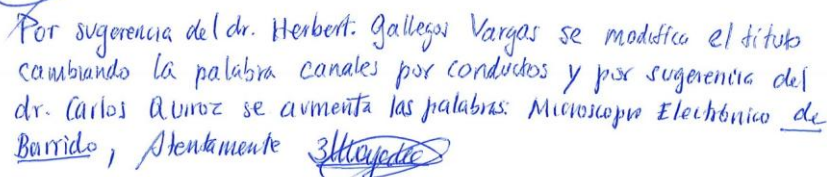 Por sugerencia del dr. Herbert. Gallegos Vargas se modifica el título
cambiando la palabra canales por conductos y por sugerencia del
dr. Carlos Quiroz se aumenta las palabras: Microscopio Electrónico de
Barrido, Atentamente